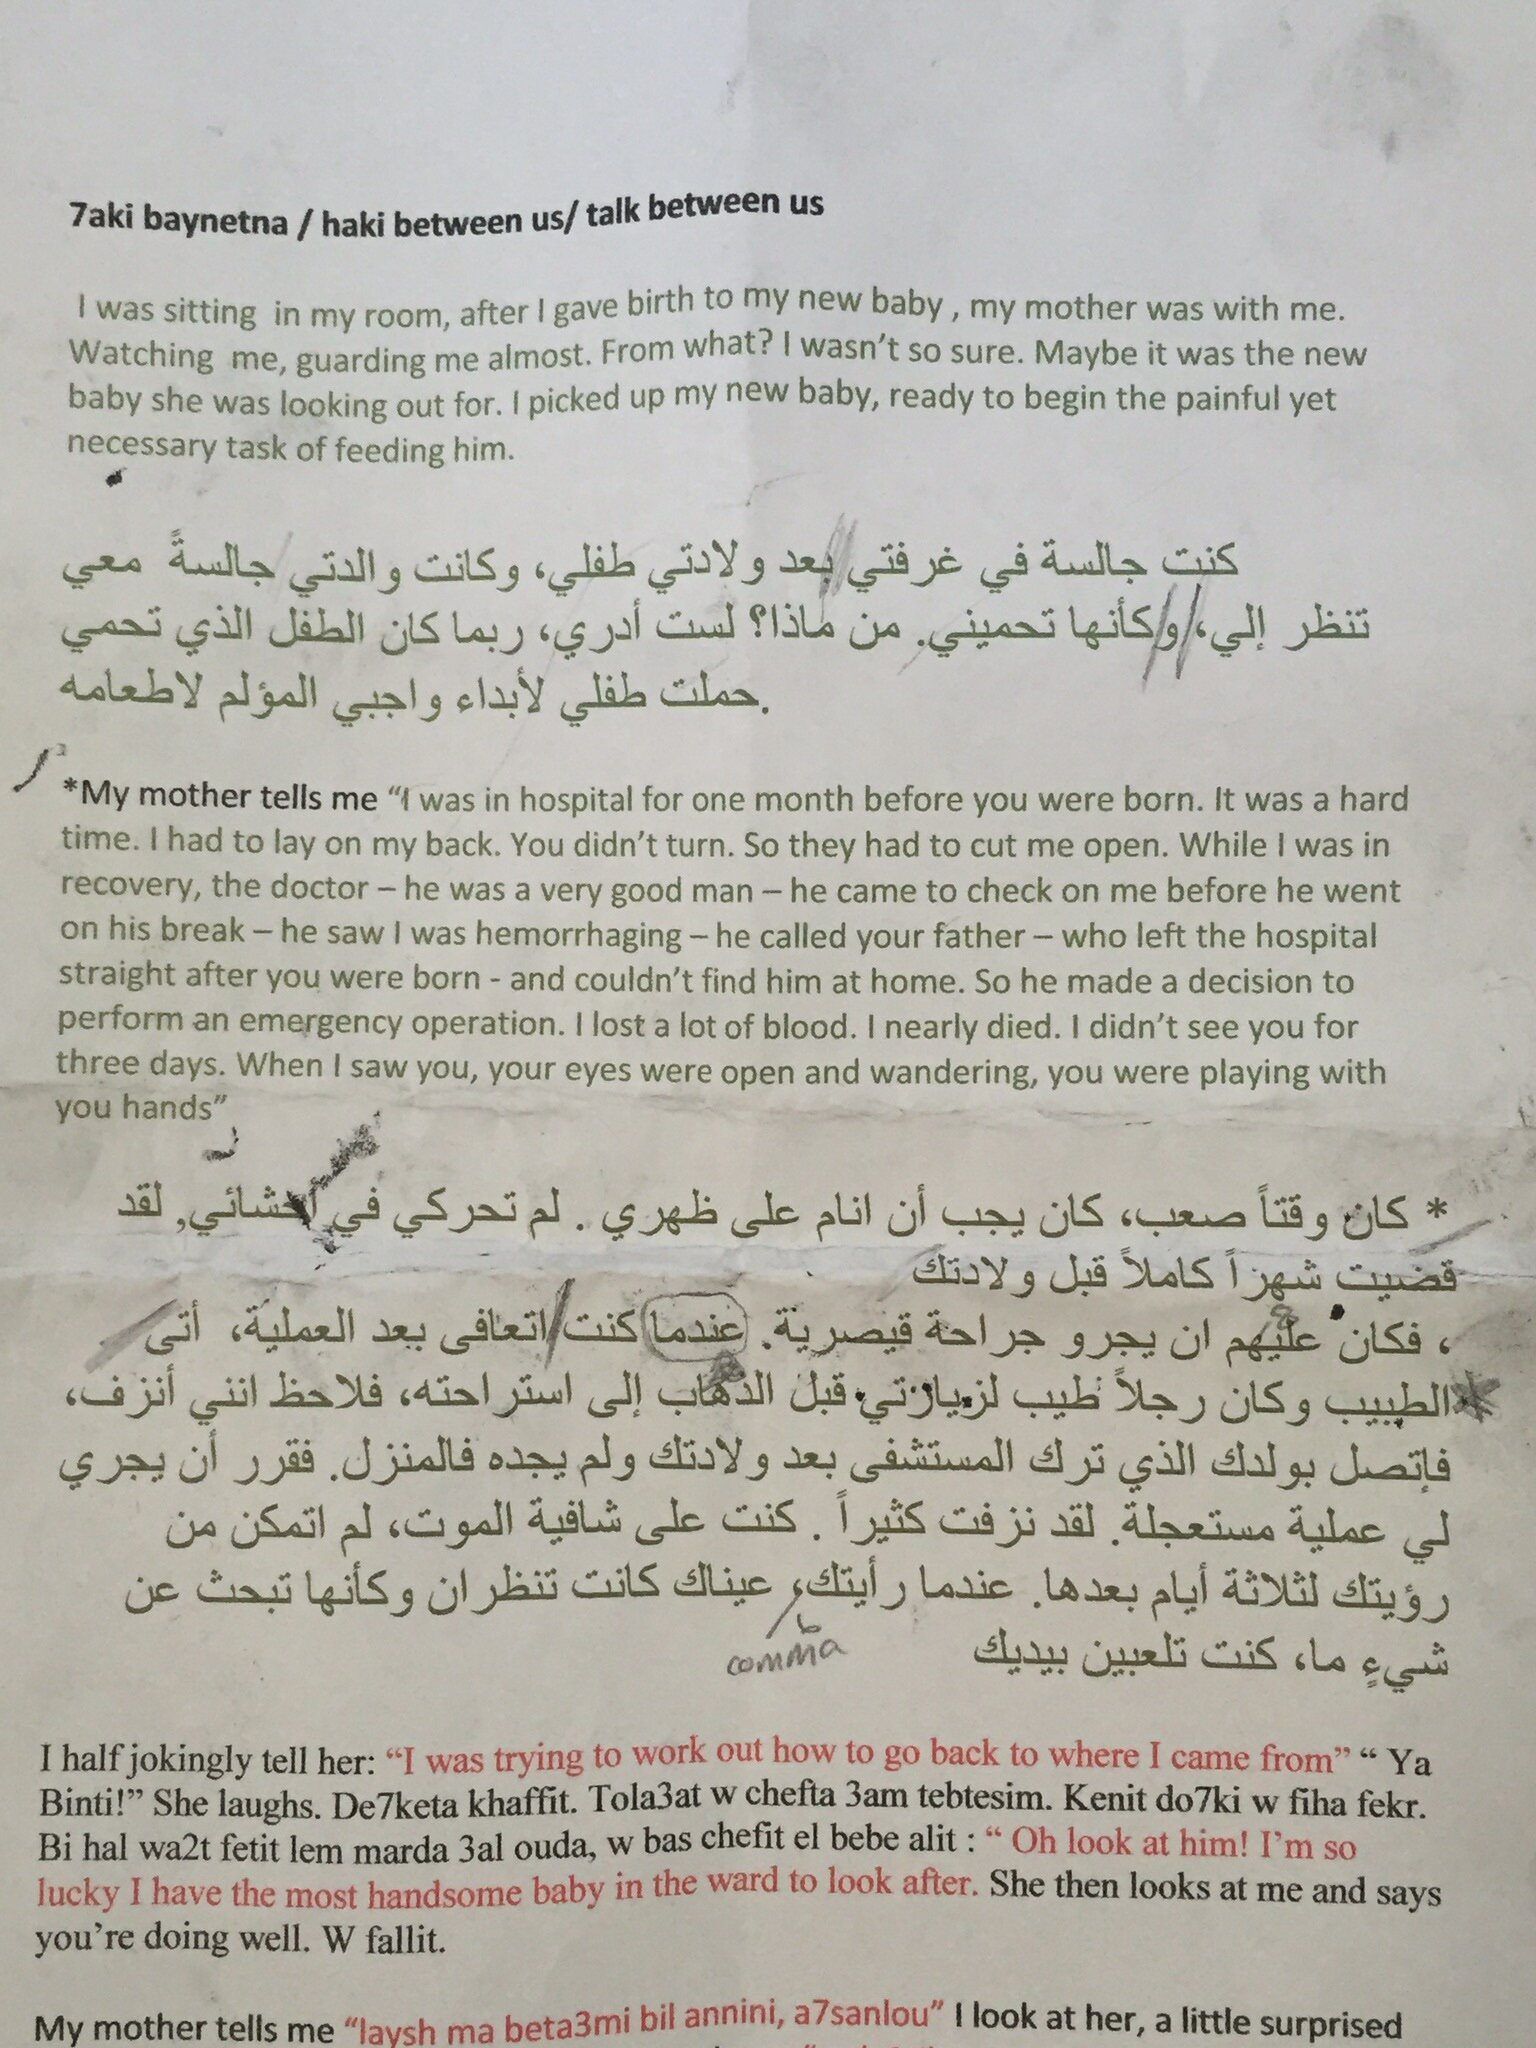 7aki baynetna / haki between us/ talk between us
I was sitting in my room, after I gave birth to my new baby , my mother was with me.
Watching me, guarding me almost. From what? I wasn't so sure. Maybe it was the new
baby she was looking out for. I picked up my new baby, ready to begin the painful yet
necessary task of feeding him.
كنت جالسة في غرفتي بعد ولادتي طفلي، وكانت والدتي جالسةً معي
تنظر إلي، وكأنها تحميني. من ماذا؟ لست أدري، ربما كان الطفل الذي تحمي
.حملت طفلي لأبداء واجبي المؤلم لاطعامه
*My mother tells me "I was in hospital for one month before you were born. It was a hard
time. I had to lay on my back. You didn't turn. So they had to cut me open. While I was in
recovery, the doctor – he was a very good man – he came to check on me before he went
on his break – he saw I was hemorrhaging – he called your father – who left the hospital
straight after you were born - and couldn't find him at home. So he made a decision to
perform an emergency operation. I lost a lot of blood. I nearly died. I didn't see you for
three days. When I saw you, your eyes were open and wandering, you were playing with
you hands"
* كان وقتاً صعب، كان يجب أن انام على ظهري . لم تحركي في احشائي, لقد
قضيت شهراً كاملاً قبل ولادتك
، فكان عليهم ان يجرو جراحة قيصرية. عندما كنت اتعافى بعد العملية، أتى
الطبيب وكان رجلاً طيب لزيارتي قبل الذهاب إلى استراحته، فلاحظ انني أنزف،
فإتصل بولدك الذي ترك المستشفى بعد ولادتك ولم يجده فالمنزل. فقرر أن يجري
لي عملية مستعجلة. لقد نزفت كثيراً . كنت على شافية الموت، لم اتمكن من
رؤيتك لثلاثة أيام بعدها. عندما رأيتك، عيناك كانت تنظران وكأنها تبحث عن
شيءٍ ما، كنت تلعبين بيديك
comma
I half jokingly tell her: "I was trying to work out how to go back to where I came from" " Ya
Binti!" She laughs. De7keta khaffit. Tola3at w chefta 3am tebtesim. Kenit do7ki w fiha fekr.
Bi hal wa2t fetit lem marda 3al ouda, w bas chefit el bebe alit : " Oh look at him! I'm so
lucky I have the most handsome baby in the ward to look after. She then looks at me and says
you're doing well. W fallit.
My mother tells me "laysh ma beta3mi bil annini, a7sanlou" I look at her, a little surprised